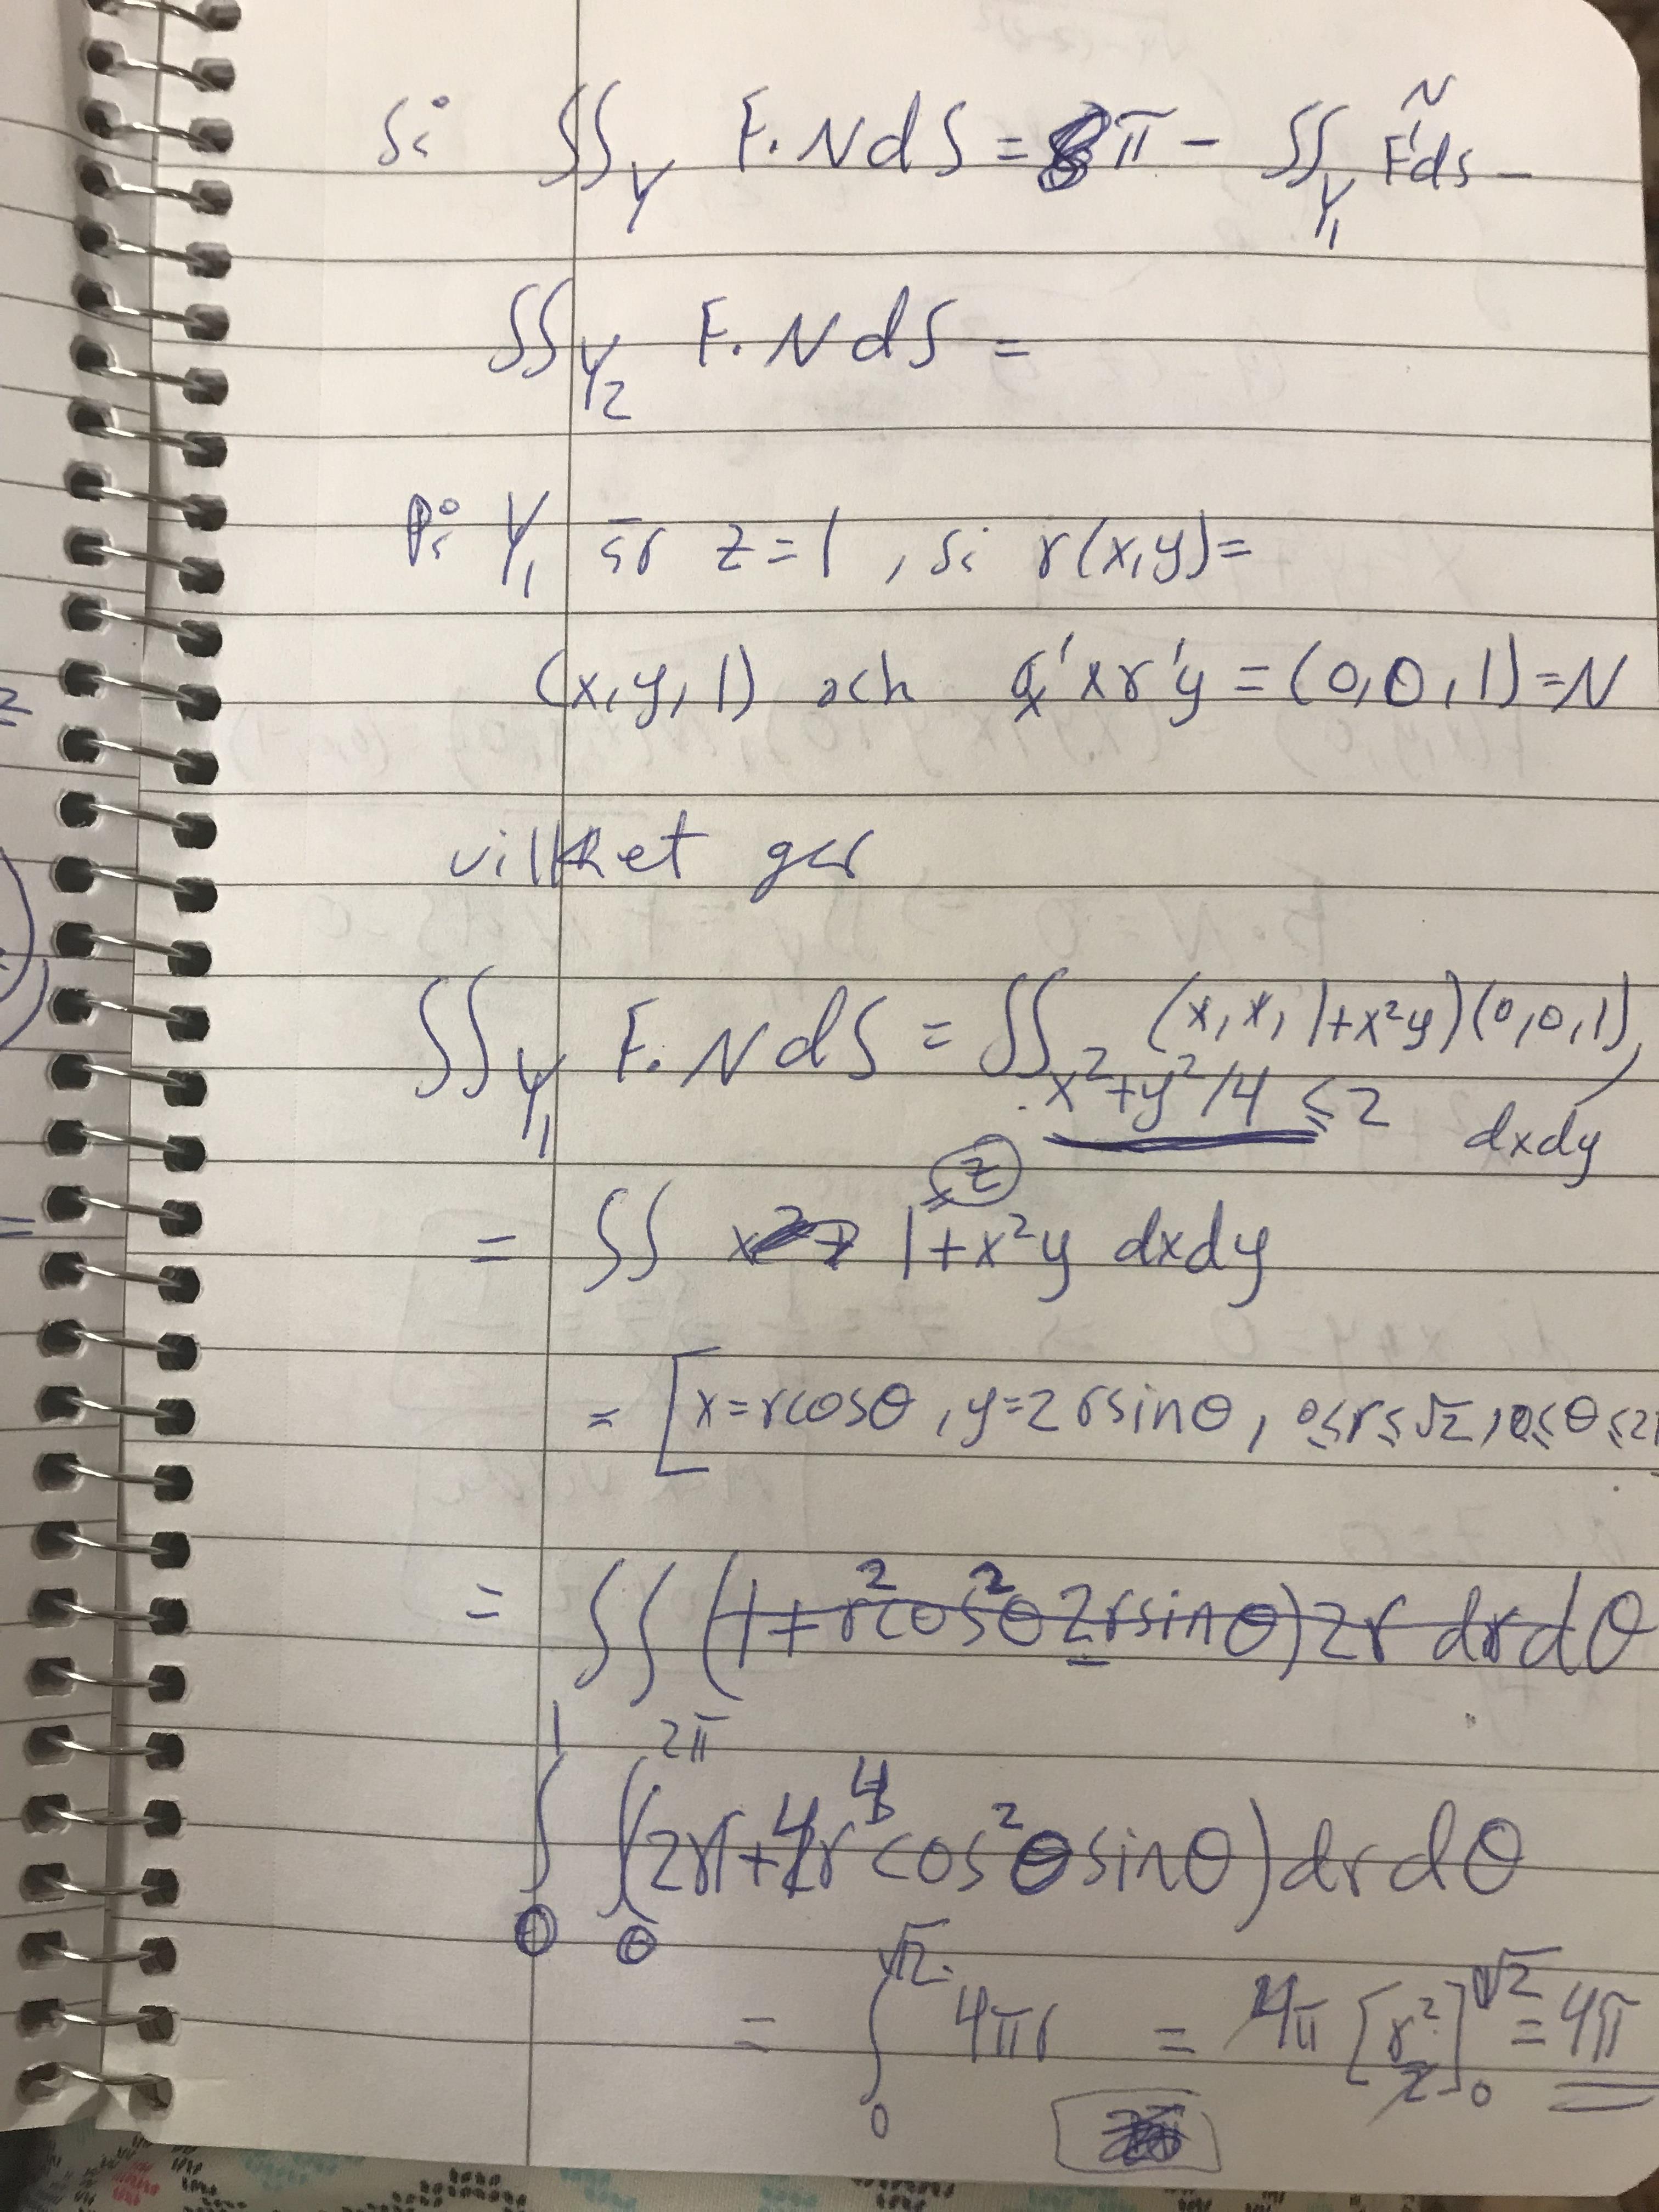 så ∬_Y F·N dS = 8π - ∬_{Y_1} F·N dS -
∬_{Y_2} F·N dS =
På Y_1 är z = 1, så r(x,y) =
(x,y,1) och r'_x × r'_y = (0,0,1) = N
vilket ger
∬_{Y_1} F·N dS = ∬_{x²+y²/4 ≤ 2} (x, x, 1+x²y)(0,0,1) dxdy
= ∬ 1+x²y dxdy
= [x = r cosθ, y = 2r sinθ, 0≤r≤√2, 0≤θ≤2π
= ∬ (1 + r² cos²θ 2r sinθ) 2r dr dθ
= ∫_0 ∫_0^{2π} (2r + 4r⁴ cos²θ sinθ) dr dθ
= ∫_0^{√2} 4πr = 4π [r²/2]_0^{√2} = 4π